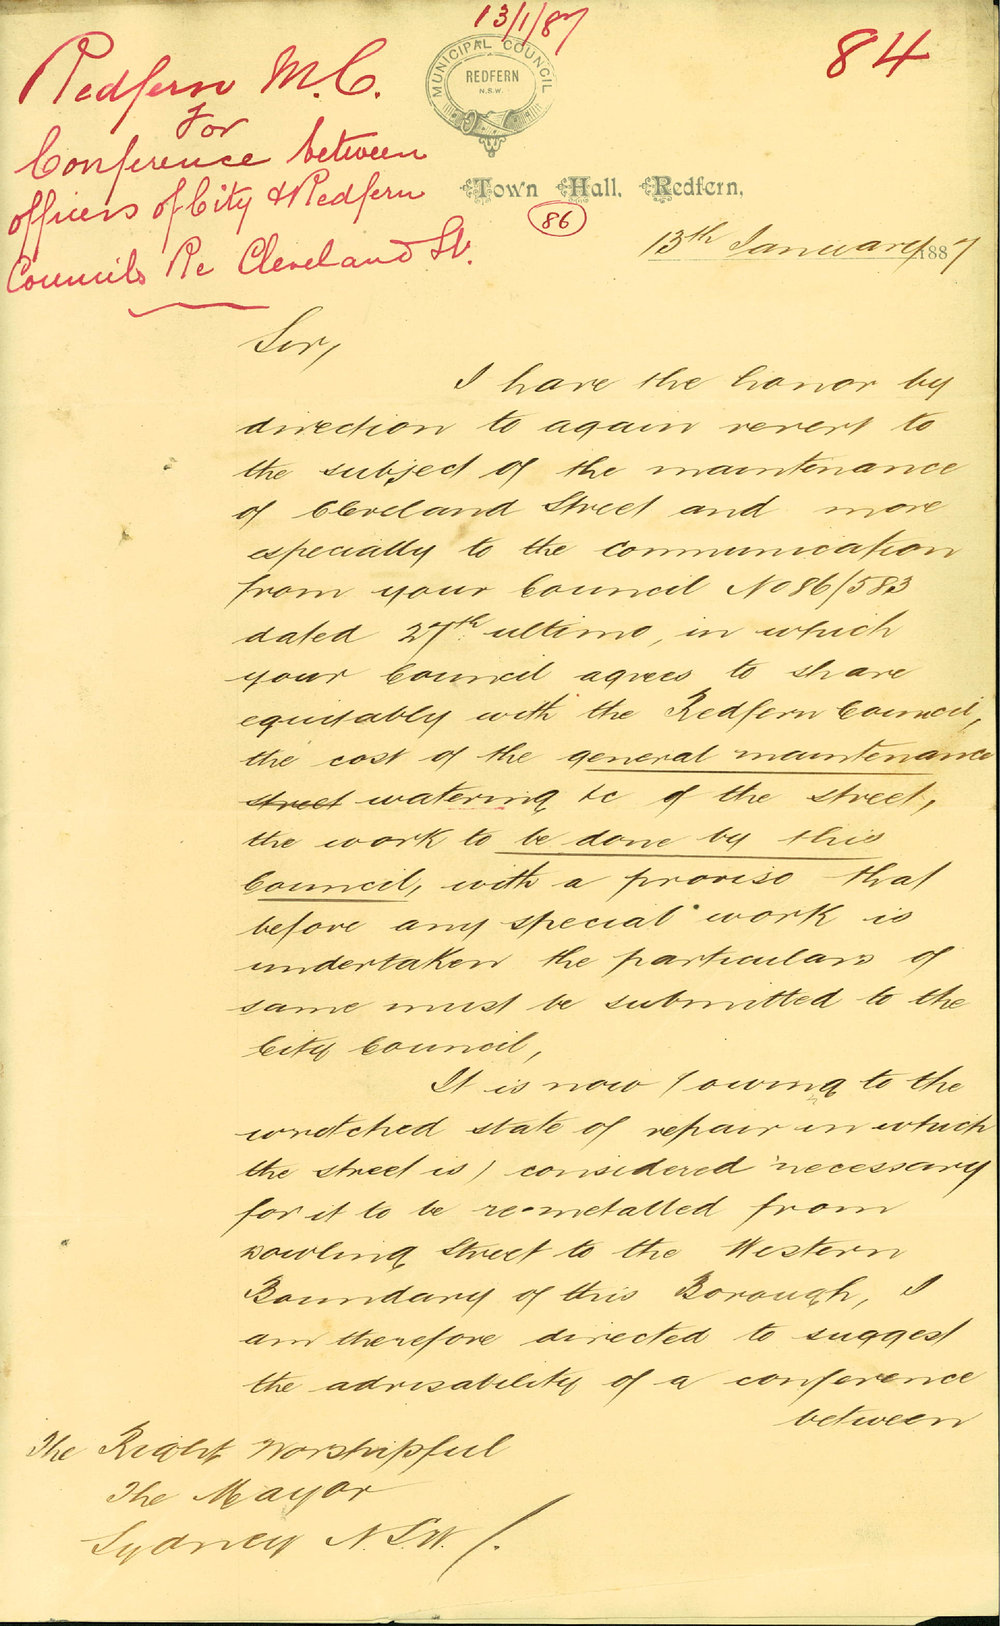 13/1/87
84
Redfern M.C.
For
Conference between
officers of City & Redfern
Councils Re Cleveland St.
MUNICIPAL COUNCIL
REDFERN
N.S.W.
Town Hall, Redfern,
86
13th January 1887
Sir,
I have the honor by
direction to again revert to
the subject of the maintenance
of Cleveland Street and more
especially to the communication
from your Council No 86/583
dated 27th ultimo, in which
your Council agrees to share
equitably with the Redfern Council,
the cost of the general maintenance
street watering &c of the street,
the work to be done by this
Council, with a proviso that
before any special work is
undertaken the particulars of
same must be submitted to the
City Council,
It is now (owing to the
wretched state of repair in which
the street is) considered necessary
for it to be re-metalled from
Dowling Street to the Western
Boundary of this Borough, I
am therefore directed to suggest
the advisability of a conference
between
The Right Worshipful
The Mayor
Sydney N.S.W.